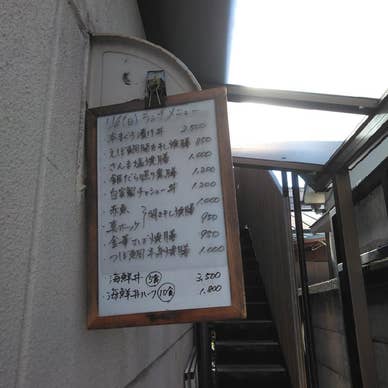 (日)ランチメニュー
本まぐろ漬け丼 2,500
・えぼ鯛開き干し焼膳 850
・さんま塩焼膳 1,000
・銀だら照り煮膳 1,200
・自家製チャーシュー丼 1,200
・赤魚 開き干し焼膳 1,000
真ホッケ 950
・金華さば焼膳 950
・つぼ鯛半身焼膳 1,000
・海鮮丼 5食 3,500
・海鮮丼ハーフ 10食 1,800